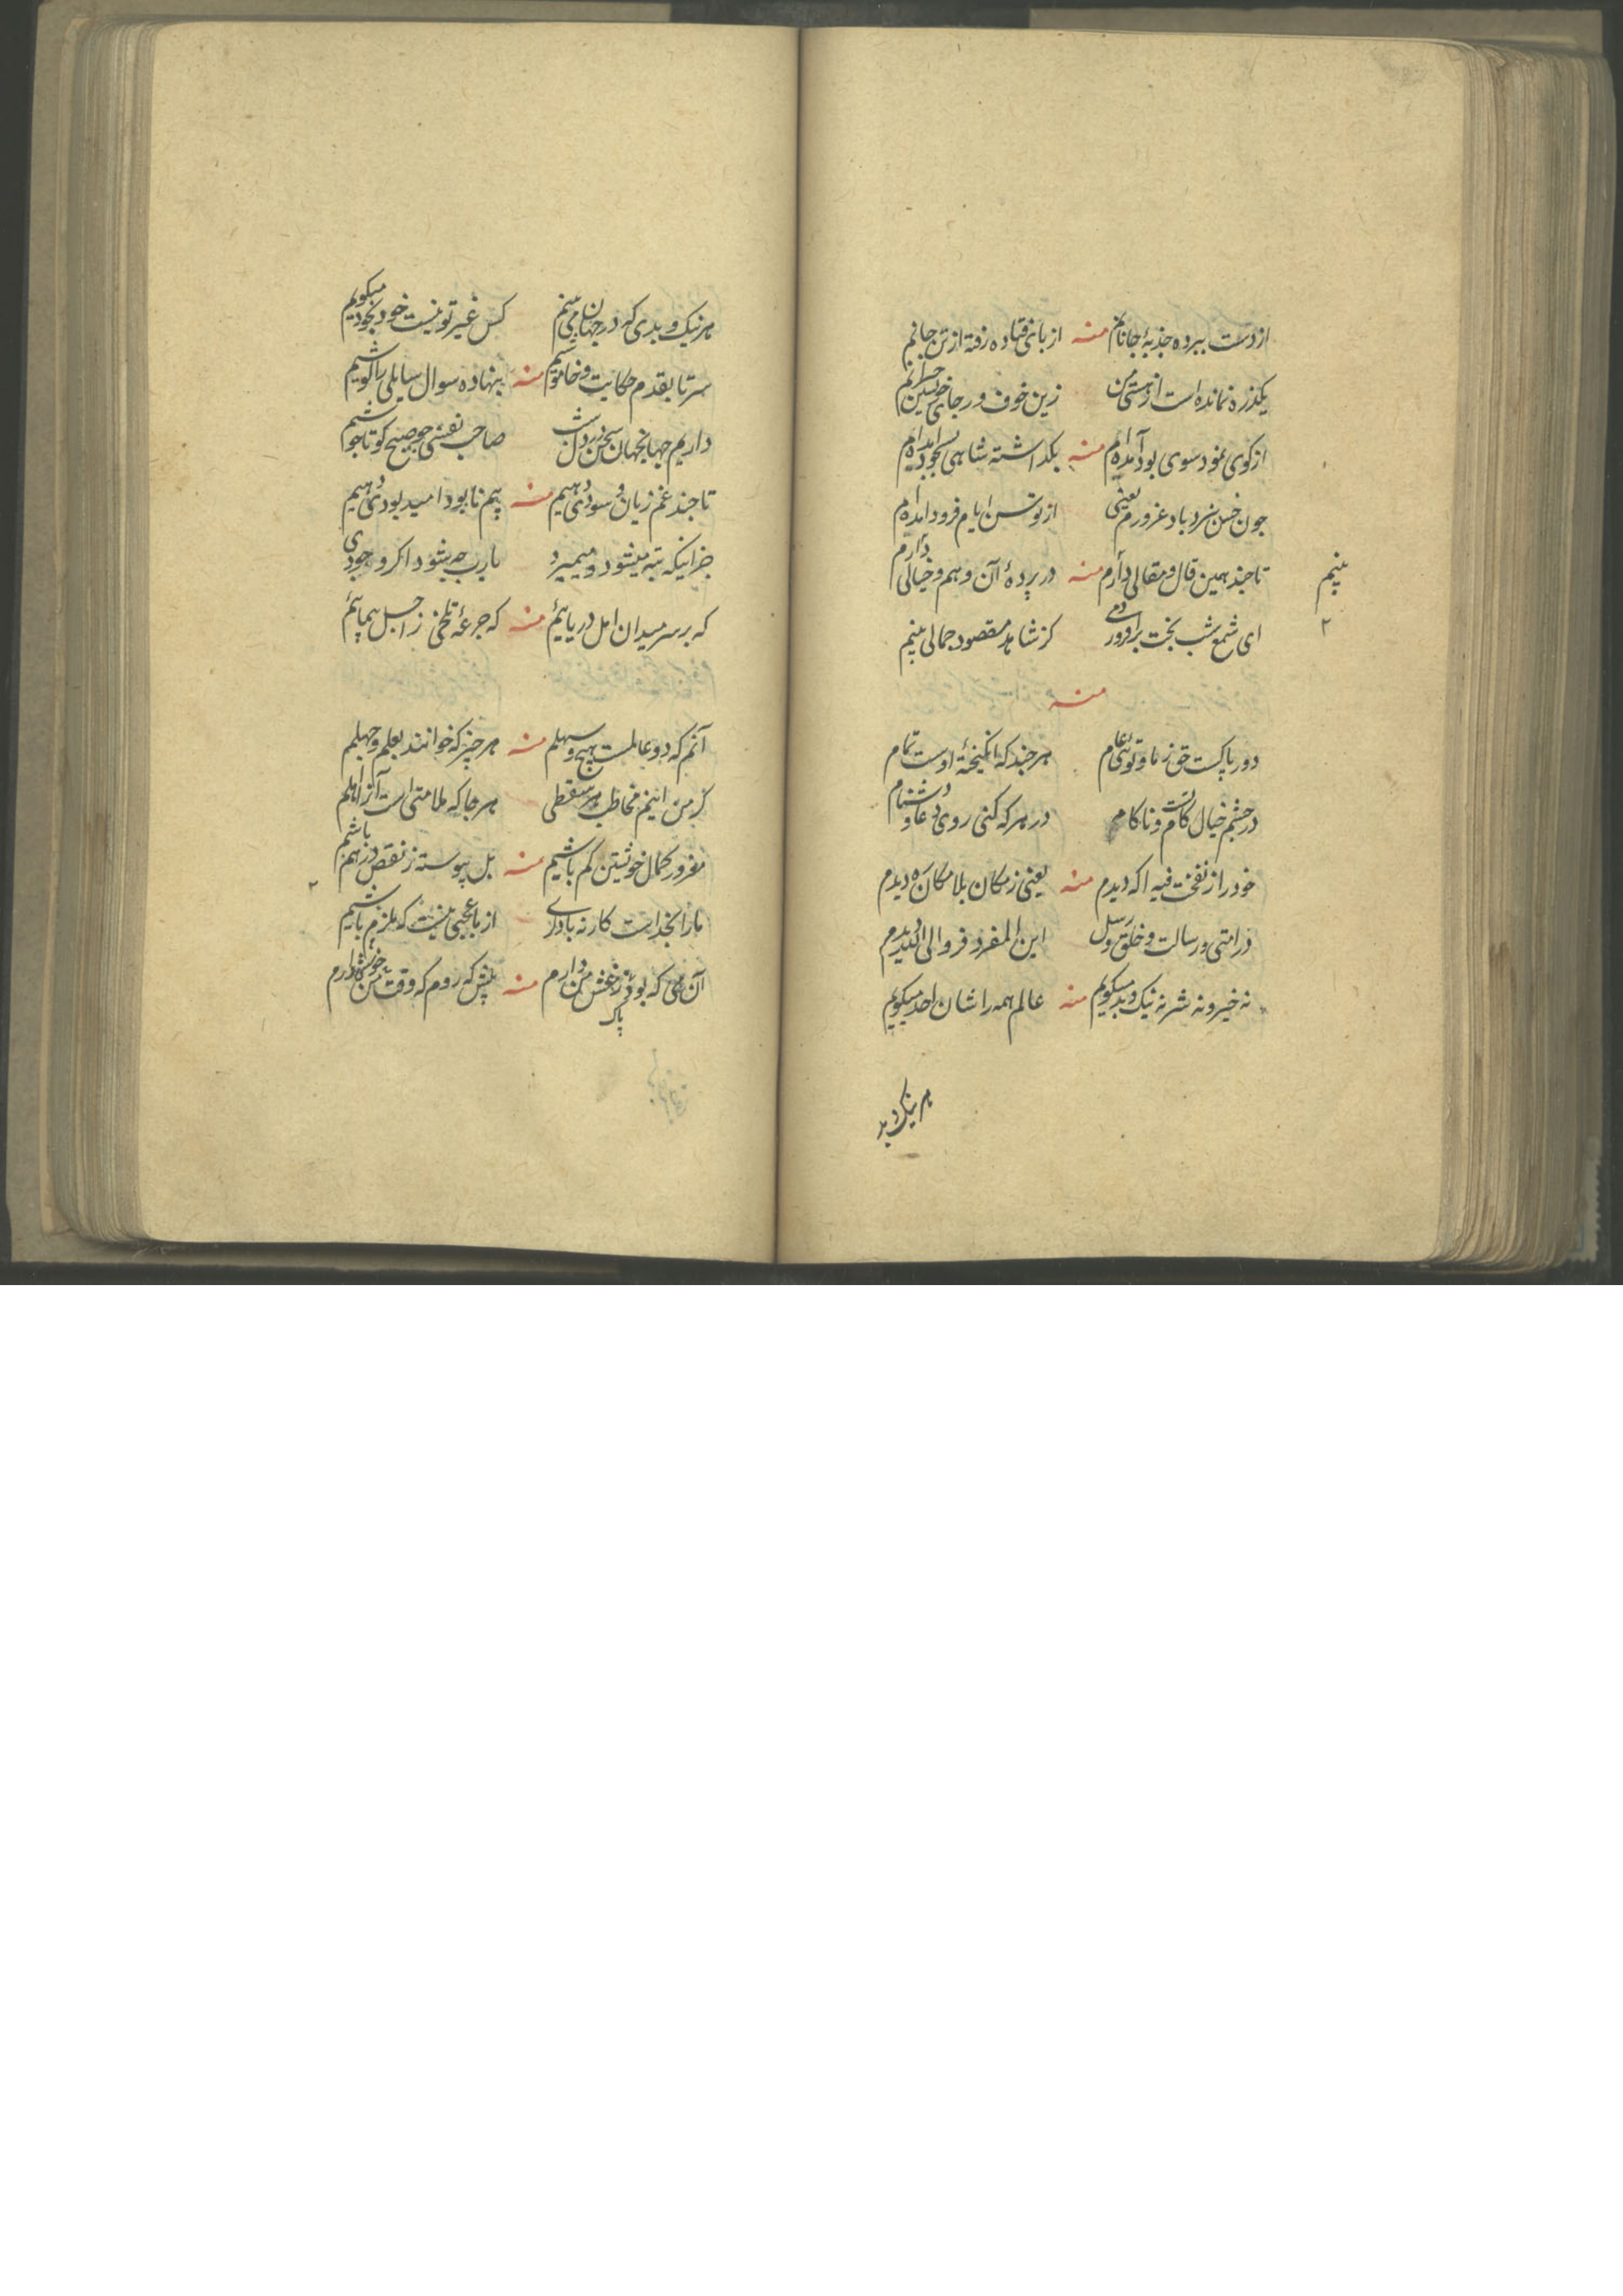 از دست ببرده جذبهٔ جانانم منه از پای فتاده رفته از تن جانم
یکذره نمانده است از هستی من زین خوف و رجای خویشتن حیرانم
از کوی نمود سوی بود آمده‌ام منه بگذاشته شاهی بسجود آمده‌ام
چون حسن نبرد باد غرورم یعنی از توسن ایام فرود آمده‌ام
تا چند همین قال و مقالی دارم منه در پردهٔ آن وهم و خیالی دارم
بینم
۲
ای شمع شب بخت برافروز دمی کز شاهد مقصود جمالی بینم
منه
دور پاکست حق ز ما و توئی عام هر چند که انگیختهٔ اوست تمام
در چشم خیال کام و ناکامی در هر که کنی روی دعا و دشنام
خود را ز نفخت فیه آگه دیدم منه یعنی ز مکان بلامکان ره دیدم
ز امتی و رسالت و خلق و رسل این المفر ففروا الی الله دیدم
نه خیر و نه شر نه نیک و بد میگویم منه عالم همه را شان احد میگویم
هر نیک و بد
هر نیک و بدی که در جهان می‌بینم کس غیر تو نیست خود بخود میگویم
سر تا بقدم حکایت و خاموشیم منه ننهاده سوال سایلی را گوشیم
داریم جهانجهان سخن در دل صاحب نفسی چو صبح کو تا جوشیم
تا چند غم زیان و سودی دهیم منه بیم نابود امید بودی دهیم
جز اینکه تبه میشود و میمیرد یارب چه شود اگر وجودی
که بر سر میدان امل دریائیم منه که جرعهٔ تلخی ز اجل پیمائیم
آنم که دو عالمست هیچ و سهلم منه هر چیز که خوانند بعلم و جهلم
گر من اینم مخاطب هر سقطی هر جا که ملامتی است آنرا اهلم
مغرور کمال خویشتن کم باشیم منه بل پیوسته ز نقص درهم باشیم
۲
ما را بخداست کار نه با دگری از ما عجبی نیست که ملزم باشیم
آن می که بود پاک ز غش من دارم منه پیش که روم که وقت خوش من دارم